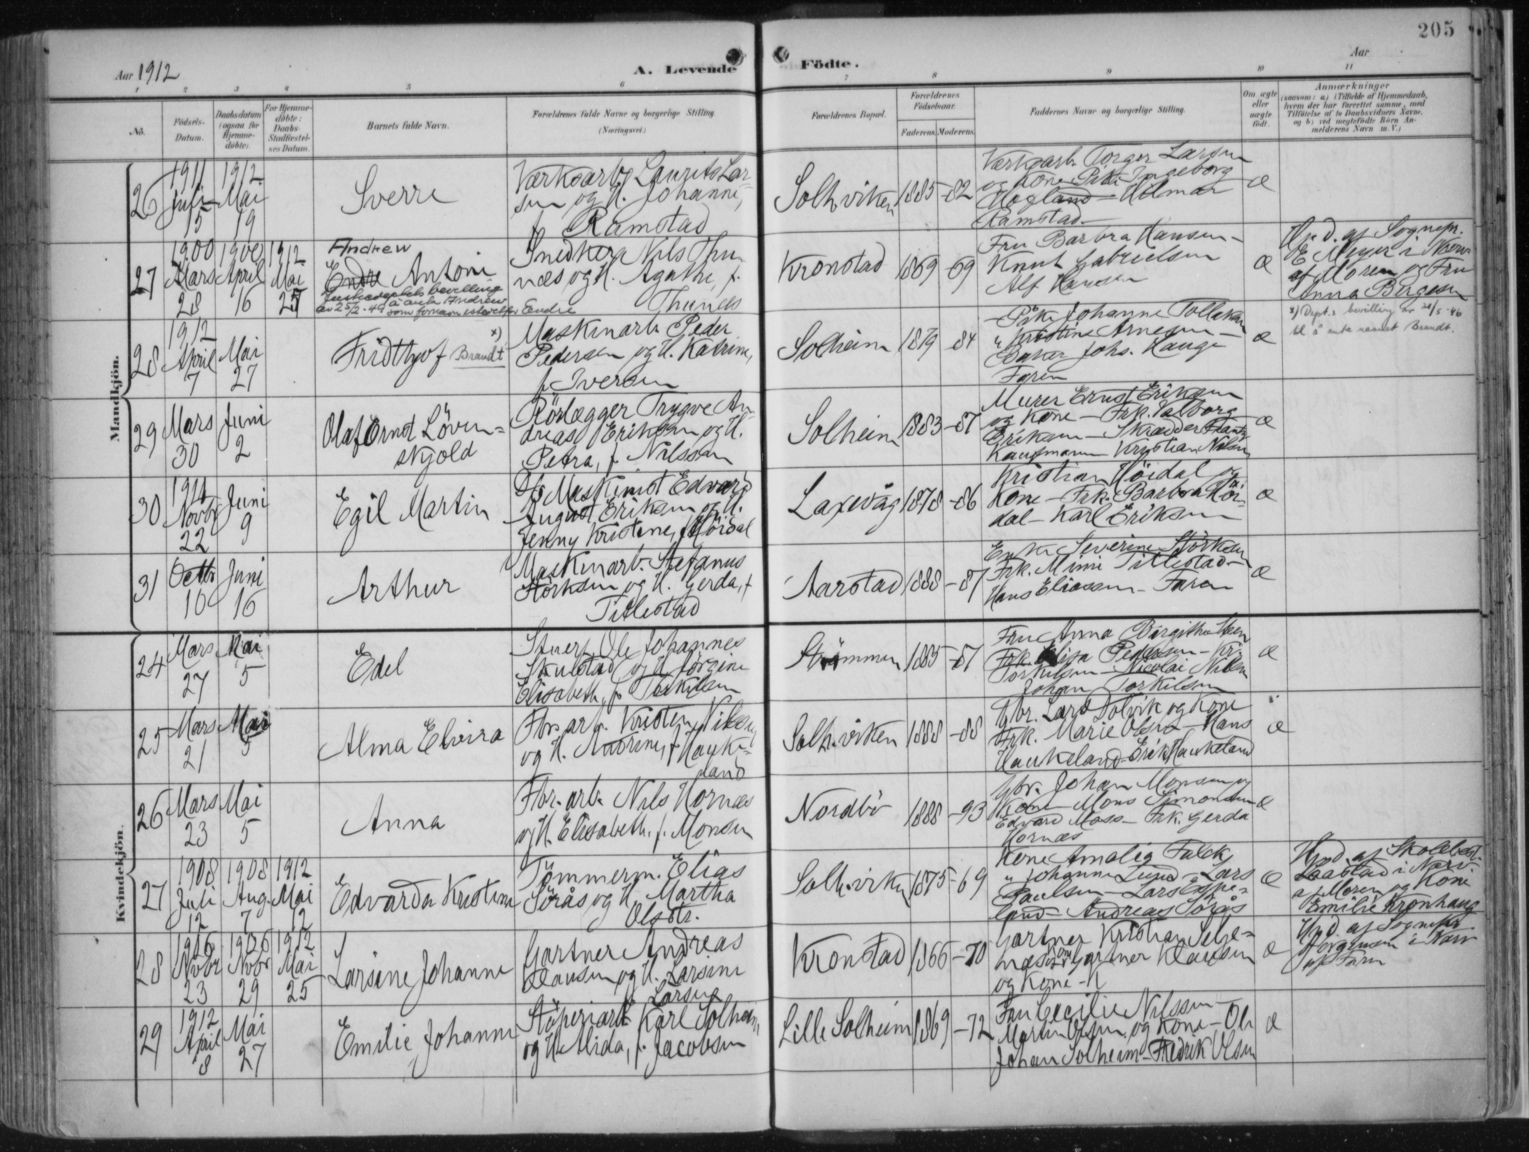 205
Aar 1912
A. Levende Fødte.
Aar
1 2 3 4 5 6 7 8 9 10 11
No.
Fødsels-Datum.
Daabsdatum (ogsaa for Hjemme-døbte).
For Hjemme-døbte: Daabs-Stadfæstel-ses Datum.
Barnets fulde Navn.
Forældrenes fulde Navne og borgerlige Stilling (Næringsvei).
Forældrenes Bopæl.
Forældrenes Fødselsaar.
Faderens. Moderens.
Faddernes Navne og borgerlige Stilling.
Om ægte eller uægte født.
Anmærkninger
Mandkjön.
26
1911 Juli 15
1912 Mai 19
Sverre
Værksarb. Laurits Lar-
sen og H. Johanne,
f. Ramstad
Solhviken
1885-82
Værksarb. Torger Larsen
og Kone Pike Ingeborg
Hogland Hilmar
Ramstad
æ
27
1900 Mars 28
1900 April 16
1912 Mai 25
Andrew
Endre Antoni
som fornavn istedetfor Endre
Snedker Nils Thu-
næs og H. Agathe, f.
Thunæs
Kronstad
1869-69
Fru Barbra Hansen -
Knut Gabrielsen
Alf Hansen
æ
Hjd. af Sognepr.
E. Meyer i Nærv.
af Moren og Fru
Anna Börgesen
28
1912 April 7
Mai 27
Fridthjof Brandt x)
Maskinarb. Peder
Pedersen og H. Katrine,
f. Iversen
Solheim
1879-84
Pike Johanne Tollefsen
" Kristine Arnesen -
Johs. Hauge
Faren
æ
x) Dept.s bevilling av
til å anta navnet Brandt.
29
Mars 30
Juni 2
Olaf Ernst Löven-
skjold
Rörlægger Trygve An-
dreas Eriksen og H.
Petra, f. Nilssen
Solheim
1883-87
Murer Ernst Eriksen
og Kone - Frk. Valborg
Eriksen - Skrædder
Kaufmann Kristian Nilsen
æ
30
1911 Novbr 22
Juni 9
Egil Martin
Maskinist Edvard
August Eriksen og H.
Jenny Kristine, f. Höidal
Laxevåg
1878-86
Kristian Höidal og
Kone - Frk. Barbra Höi-
dal - Karl Eriksen
æ
31
Octbr 10
Juni 16
Arthur
Maskinarb. Stefanus
Störksen og H. Gerda, f.
Titlestad
Aarstad
1888-87
Enke Severine Störksen
Frk. Mimi Titlestad -
Hans Eliassen - Faren
æ
Kvindekjön.
24
Mars 27
Mai 5
Edel
Stuert Ole Johannes
Skulstad og H. Jörgine
Elisabeth, f. Torkilsen
Strömmen
1885-87
Fru Anna Birgithe
Frk. Elisa Pedersen -
Torkilsen - Nicolai Nilsen
Johan Torkilsen
æ
25
Mars 21
Mai 5
Alma Elvira
Kristen Nilsen
og H. Andrine, f. Hauke-
land
Solhviken
1888-88
Gbr. Lars Dolvik og Kone
Frk. Marie Olsen - Hans
Haukeland - Erik Haukeland
æ
26
Mars 23
Mai 5
Anna
Nils Hornæs
og H. Elisabeth, f. Monsen
Nordbö
1888-93
Gbr. Johan Monsen og
Kone - Mons Simonsen
Edvard Moss - Frk. Gerda
Hornæs
æ
27
1908 Juli 12
1908 Aug. 7
1912 Mai 12
Edvarda Kristine
Tömmerm. Elias
Sörås og H. Martha
Olsdtr.
Solhviken
1875-69
Kone Amalie Falck
" Johanne Lund - Lars
Paulsen - Lars Espe-
land - Andreas Sörås
æ
Hjd. af Skolebest.
i Nærv.
af Moren og Kone
Emilie Kronhaug
28
1906 Novbr 23
1906 Novbr 29
1912 Mai 25
Larsine Johanne
Gartner Andreas
Clausen og H. Larsine
f. Larsen
Kronstad
1866-70
Gartner Kristian Selje-
næs og Gartner Klausen
og Kone -
æ
Hjd. af Sognepr.
Jörgensen i Nærv.
af Faren
29
1912 April 8
Mai 27
Emilie Johanne
Støperiarb. Karl Solheim,
og H. Alida, f. Jacobsen
Lille Solheim
1869-72
Fru Cecilie Nilssen -
Martin Olsen og Kone - Ole
Johan Solheim - Fredrik Olsen
æ